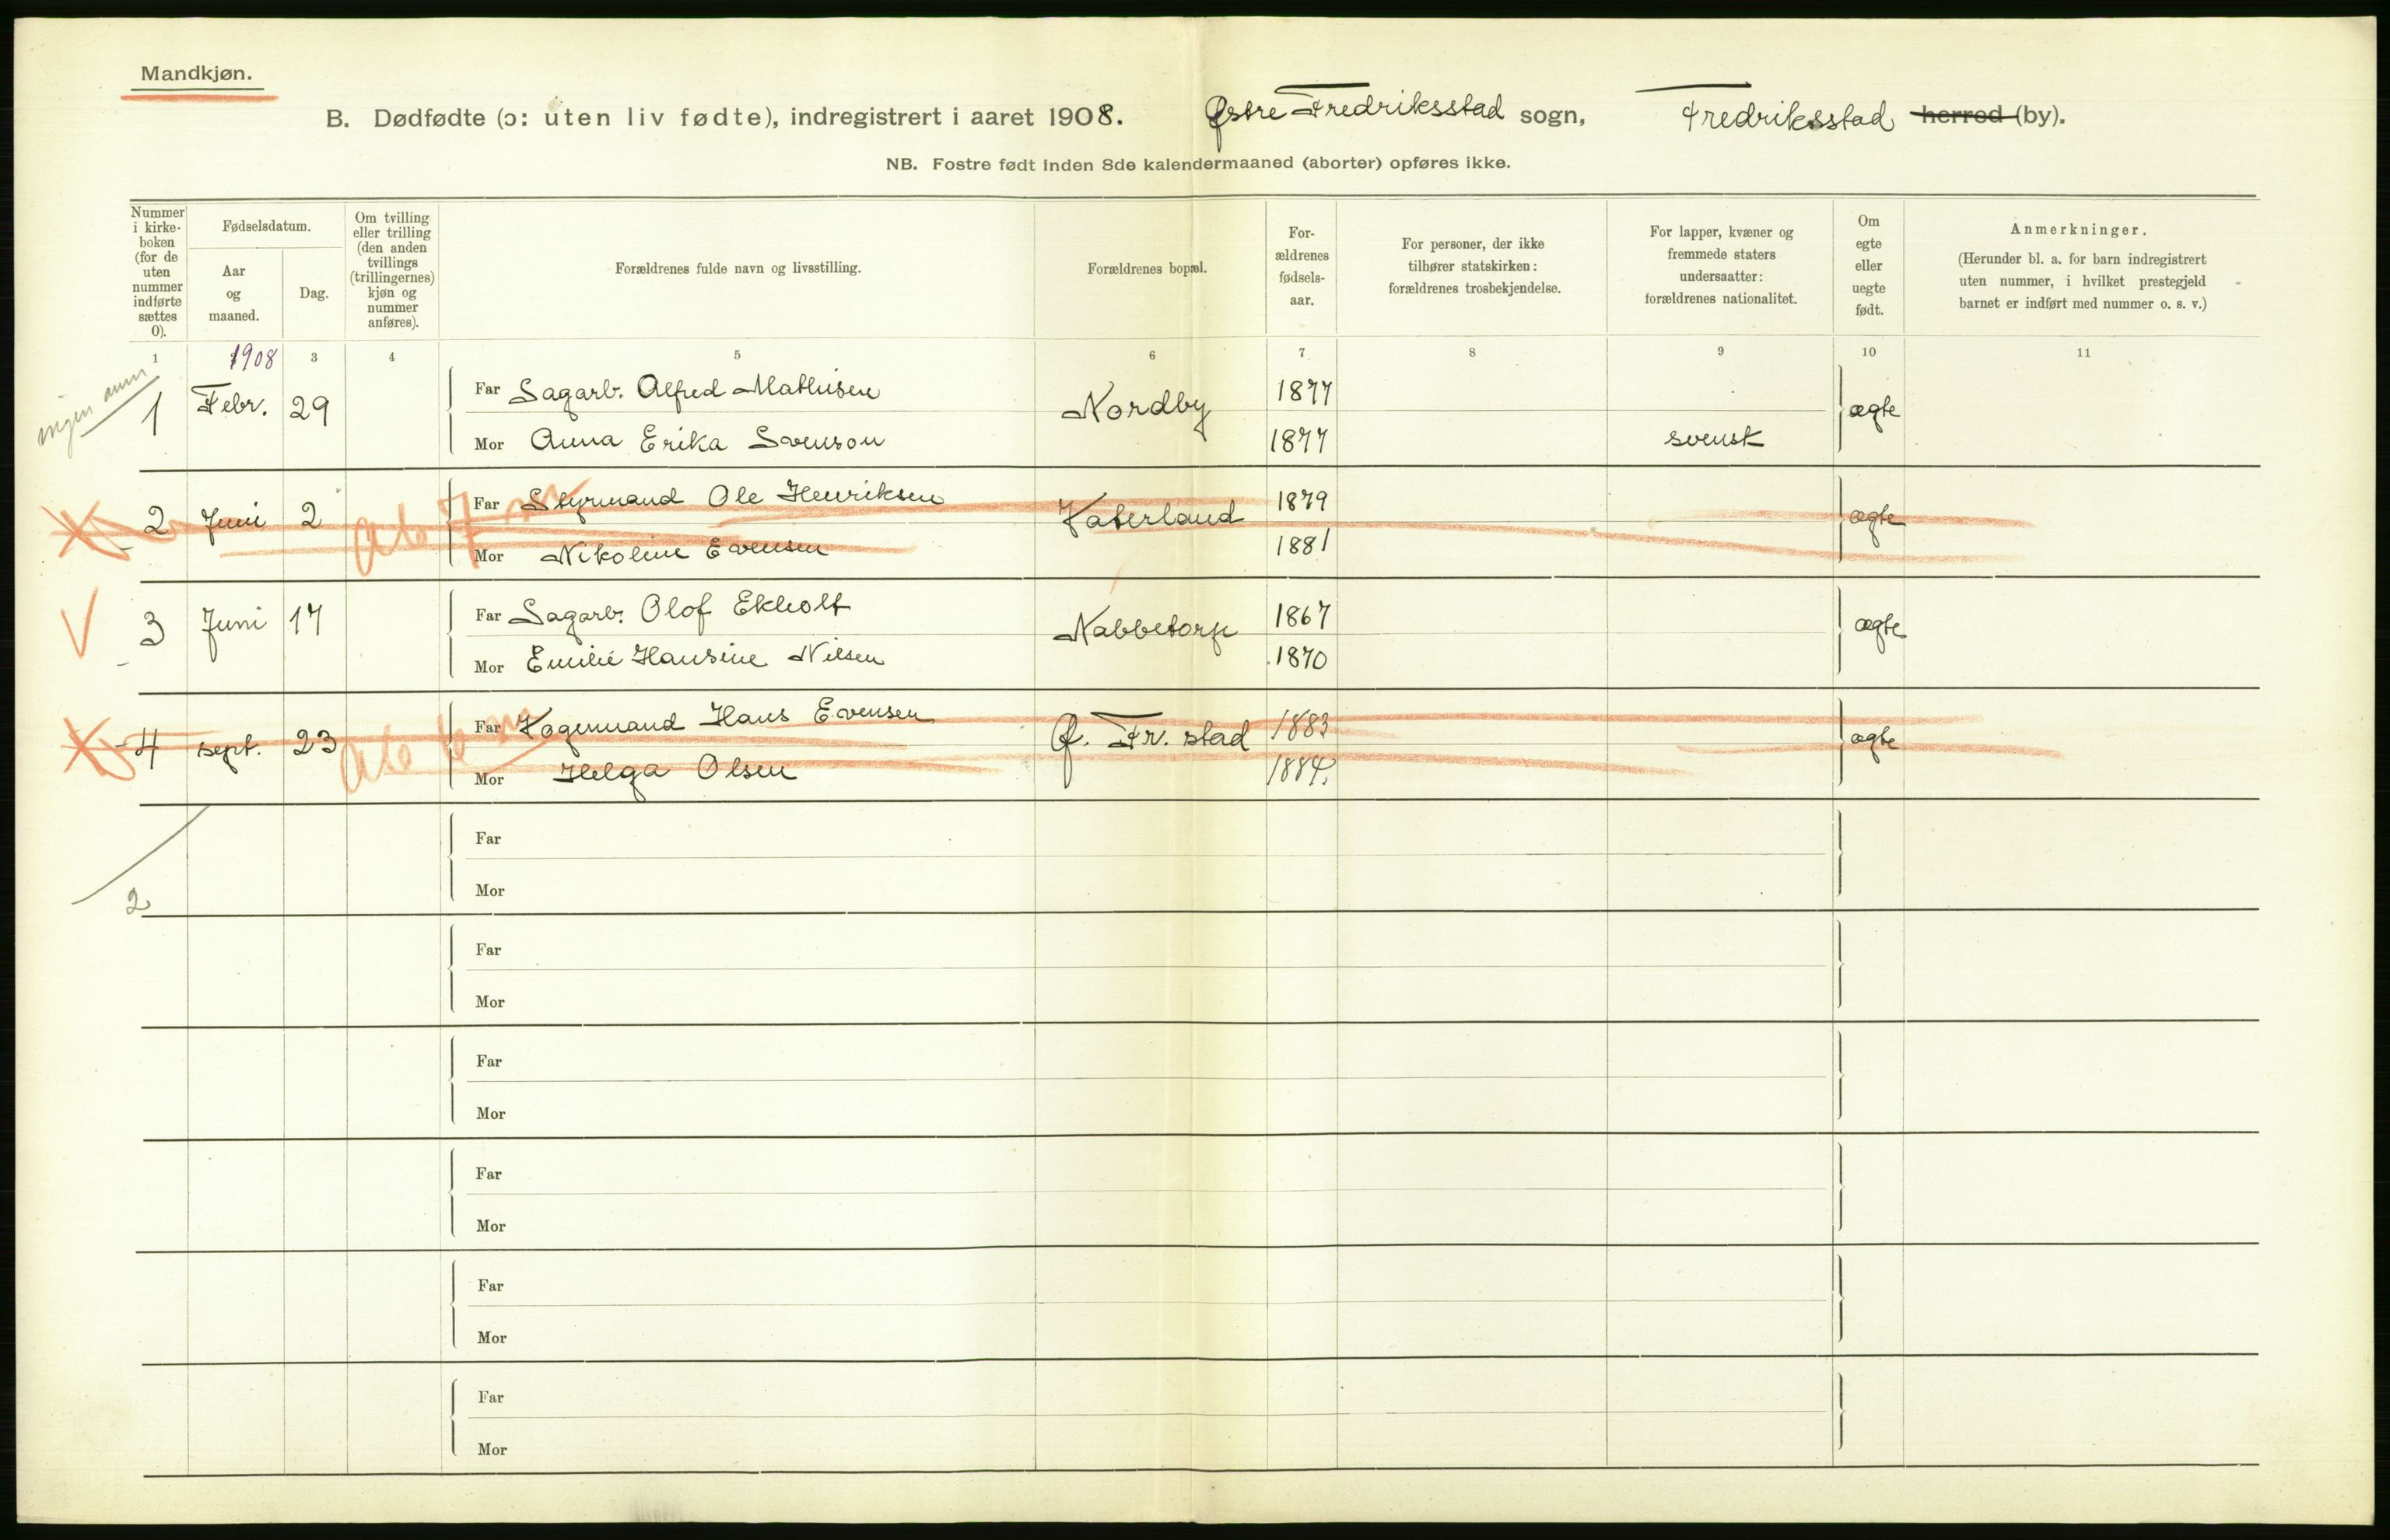 Mandkjøn.
B. Dødfødte (ɔ: uten liv fødte), indregistrert i aaret 1908. Østre Fredriksstad sogn, Fredriksstad herred (by).
NB. Fostre født inden 8de kalendermaaned (aborter) opføres ikke.
Nummer i kirkeboken (for de uten nummer indførte sættes 0).
Fødselsdatum.
Aar og maaned.
Dag.
Om tvilling eller trilling (den anden tvillings (trillingernes) kjøn og nummer anføres).
Forældrenes fulde navn og livsstilling.
Forældrenes bopæl.
For-ældrenes fødsels-aar.
For personer, der ikke tilhører statskirken: forældrenes trosbekjendelse.
For lapper, kvæner og fremmede staters undersaatter: forældrenes nationalitet.
Om egte eller uegte født.
Anmerkninger.
(Herunder bl. a. for barn indregistrert uten nummer, i hvilket prestegjeld barnet er indført med nummer o. s. v.)
1 1908 3 4 5 6 7 8 9 10 11
ingen anm
1 Febr. 29 Far Sagarb. Alfred Mathisen Nordby 1877 ægte
Mor Anna Erika Svenson 1877 svensk
2 Juni 2 Far Styrmand Ole Henriksen Katerland 1879 ægte
Mor Nikoline Evensen 1881
3 Juni 17 Far Sagarb. Olof Ekholt Nabbetorp 1867 ægte
Mor Emilie Hansine Nilsen 1870
4 sept. 23 Far Vognmand Hans Evensen Ø. Fr.stad 1883 ægte
Mor Helga Olsen 1884.
Far
Mor
2
Far
Mor
Far
Mor
Far
Mor
Far
Mor
Far
Mor